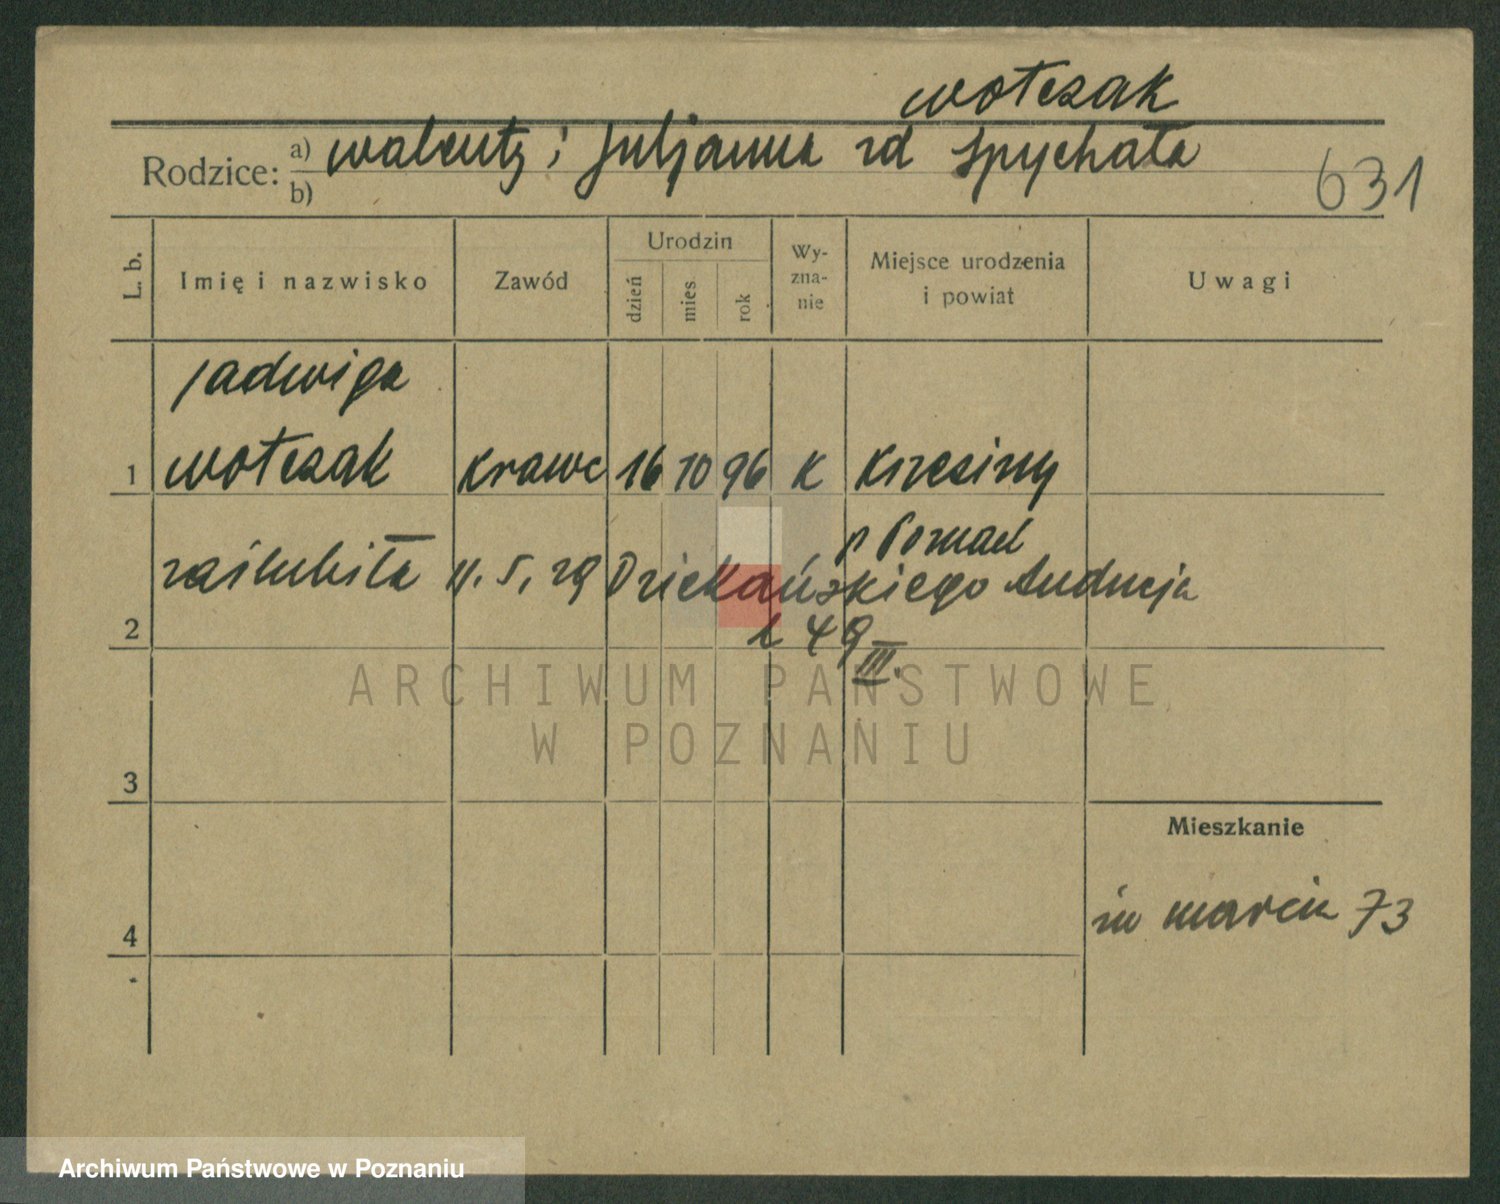 Wołczak
Rodzice: a) Walenty i Juljanna zd Spychała
b)
631
L. b.
Imię i nazwisko
Zawód
Urodzin
dzień
mies
rok
Wy-
zna-
nie
Miejsce urodzenia
i powiat
Uwagi
Jadwiga
1 Wołczak krawc 16 10 96 K Krzesiny
p Poznań
zaślubiła 11. 5. 29 Dziekańskiego Andrzeja
2
L 49 III.
ARCHIWUM PAŃSTWOWE
W POZNANIU
3
Mieszkanie
4
św Marcin 73
Archiwum Państwowe w Poznaniu